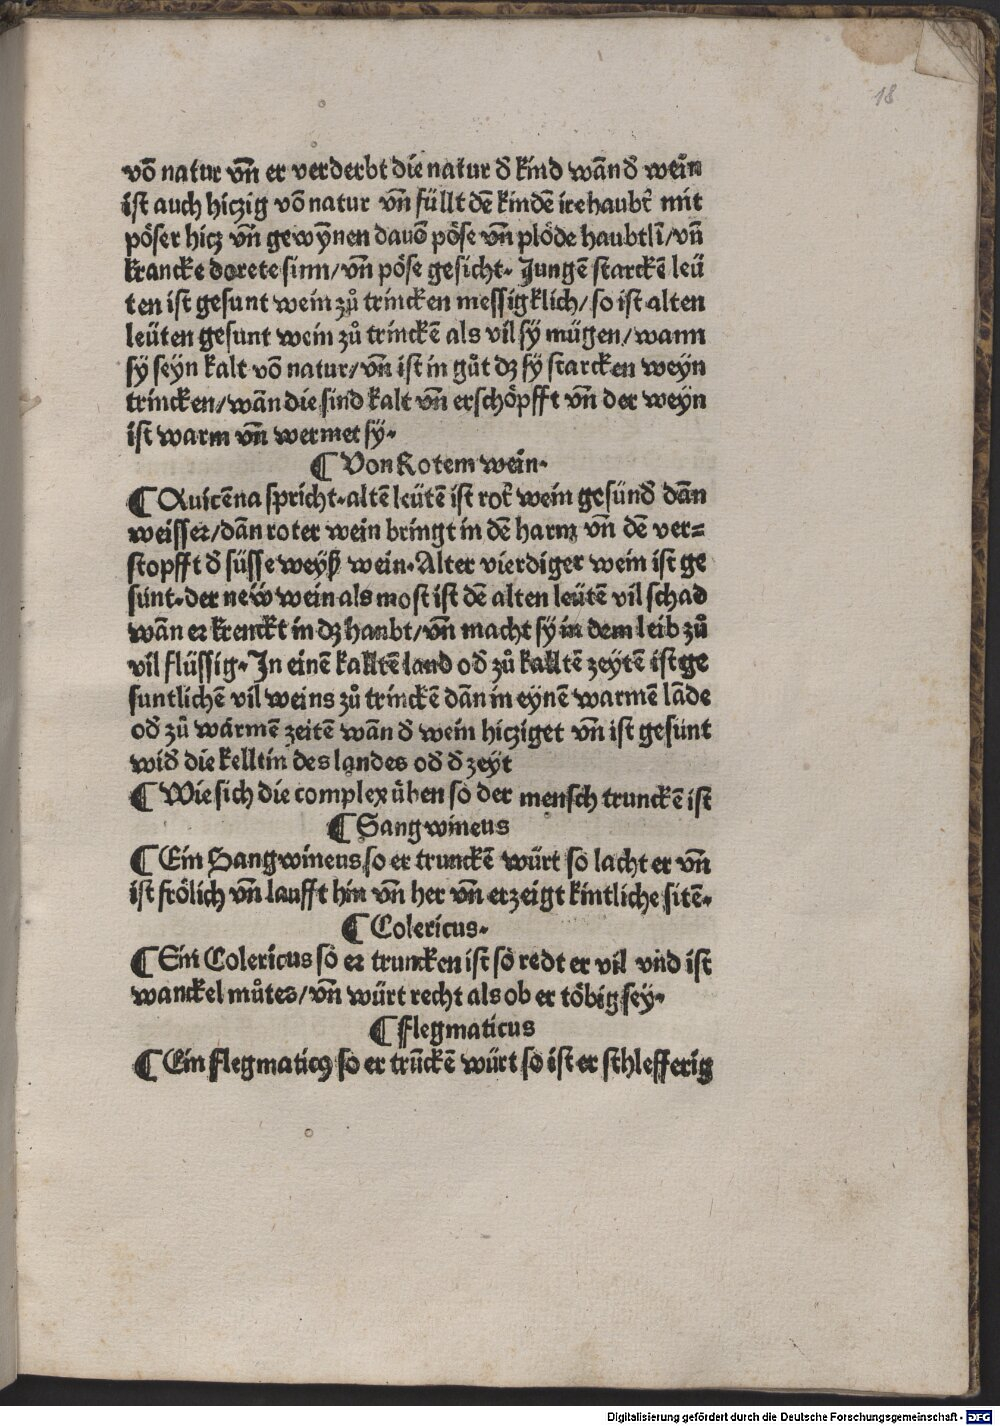 18
võ natur vñ er verderbt die natur d̕ kind wañ d̕ wein
ist auch hiczig võ natur vñ füllt dē kindē ire haubt᷑ mit
pöser hicz vñ gewȳnen davō pöse vñ plöde haubtlī/vñ
krancke dorete sinn/vñ pöse gesicht· Jungē starckē leü
ten ist gesunt wein zů trincken messigklich/so ist alten
leüten gesunt wein zů trinckē als vil sÿ mügen/wann
sÿ seyn kalt võ natur/vñ ist in gůt dz sÿ starcken weyn
trincken/wañ die sind kalt vñ erschöpfft vñ der weyn
ist warm vñ wermet sÿ·
¶ Von Rotem wein·
¶ Auicēna spricht·altē leütē ist rot᷑ wein gesünd̕ dañ
weisser/dañ roter wein bringt in dē harm vñ dē ver=
stopfft d̕ süsse weyß wein·Alter vierdiger wein ist ge
sunt·der neẅ wein als most ist dē alten leütē vil schad
wañ er krenckt in dz haubt/vñ macht sÿ in dem leib zů
vil flüssig·In einē kalltē land od̕ zů kalltē zeytē ist ge
suntlichē vil weins zů trinckē dañ in eynē warmē lāde
od̕ zů warmē zeitē wañ d̕ wein hicziget vñ ist gesunt
wid̕ die kelltin des landes od̕ d̕ zeyt
¶ Wie sich die complex üben so der mensch trunckē ist
¶ Sangwineus
¶ Ein Sangwineus so er trunckē würt so lacht er vñ
ist frölich vñ laufft hin vñ her vñ erzeigt kintliche sitē·
¶ Colericus·
¶ Ein Colericus so er truncken ist so redt er vil vnd ist
wanckel můtes/vñ würt recht als ob er töbig sey·
¶ flegmaticus
¶ Ein flegmaticꝰ so er trūckē würt so ist er schlefferig
Digitalisierung gefördert durch die Deutsche Forschungsgemeinschaft - DFG